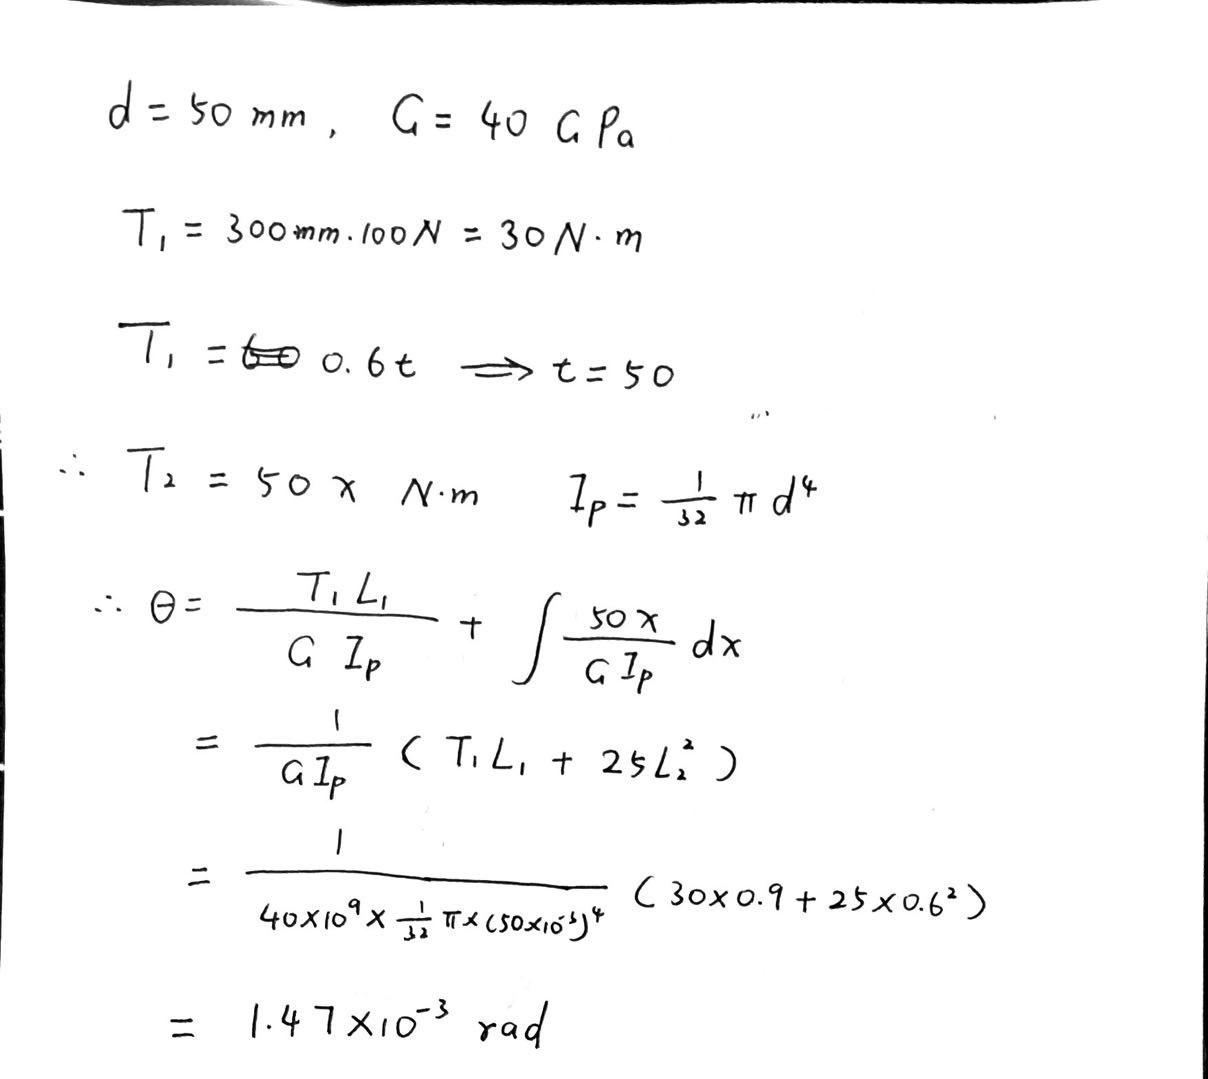 d = 50 mm, G = 40 GPa
T₁ = 300mm·100N = 30N·m
T₁ = 0.6t ⟹ t = 50
∴ T₂ = 50x N·m I_p = 1/32 π d⁴
∴ θ = T₁L₁/(G I_p) + ∫ 50x/(G I_p) dx
= 1/(G I_p) (T₁L₁ + 25L₂²)
= 1/(40×10⁹ × 1/32 π × (50×10⁻³)⁴) (30×0.9 + 25×0.6²)
= 1.47×10⁻³ rad